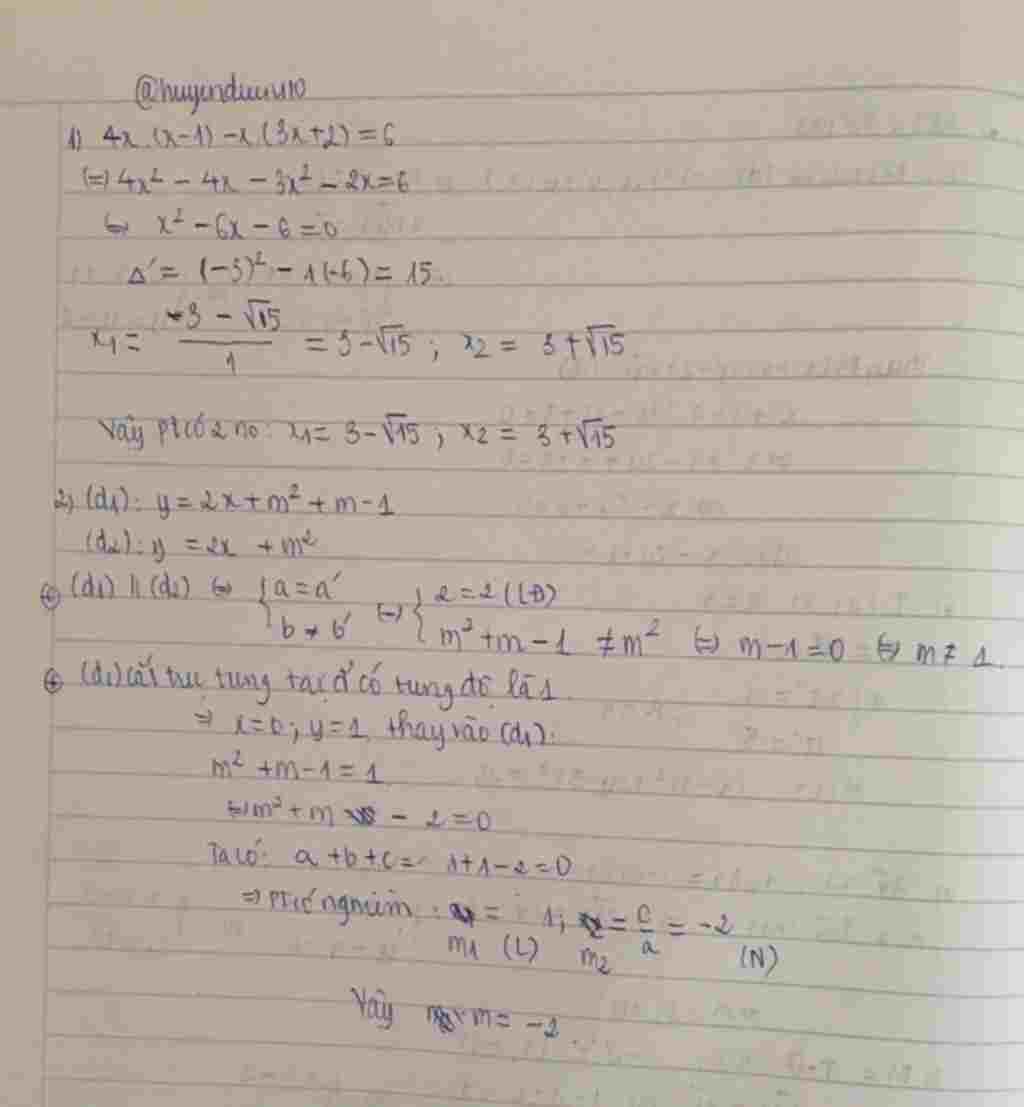 1) 4x.(x-1) - x(3x+2) = 6
(=) 4x² - 4x - 3x² - 2x = 6
⇔ x² - 6x - 6 = 0
Δ' = (-3)² - 1(-6) = 15.
x₁ = (-3 - √15)/1 = 3 - √15 ; x₂ = 3 + √15
Vậy pt có 2 no: x₁ = 3 - √15 ; x₂ = 3 + √15
2) (d₁): y = 2x + m² + m - 1
(d₂): y = 2x + m²
(d₁) || (d₂) ⇔ { a = a' ; b ≠ b' (=) { 2 = 2 (LĐ) ; m² + m - 1 ≠ m² (=) m - 1 ≠ 0 ⇔ m ≠ 1.
(d₁) cắt trục tung tại đ' có tung độ là 1.
⇒ x = 0 ; y = 1 thay vào (d₁):
m² + m - 1 = 1
⇔ m² + m - 2 = 0
Ta có: a + b + c = 1 + 1 - 2 = 0
⇒ pt có nghiệm : m₁ = 1 (L) ; m₂ = c/a = -2 (N)
Vậy m = -2